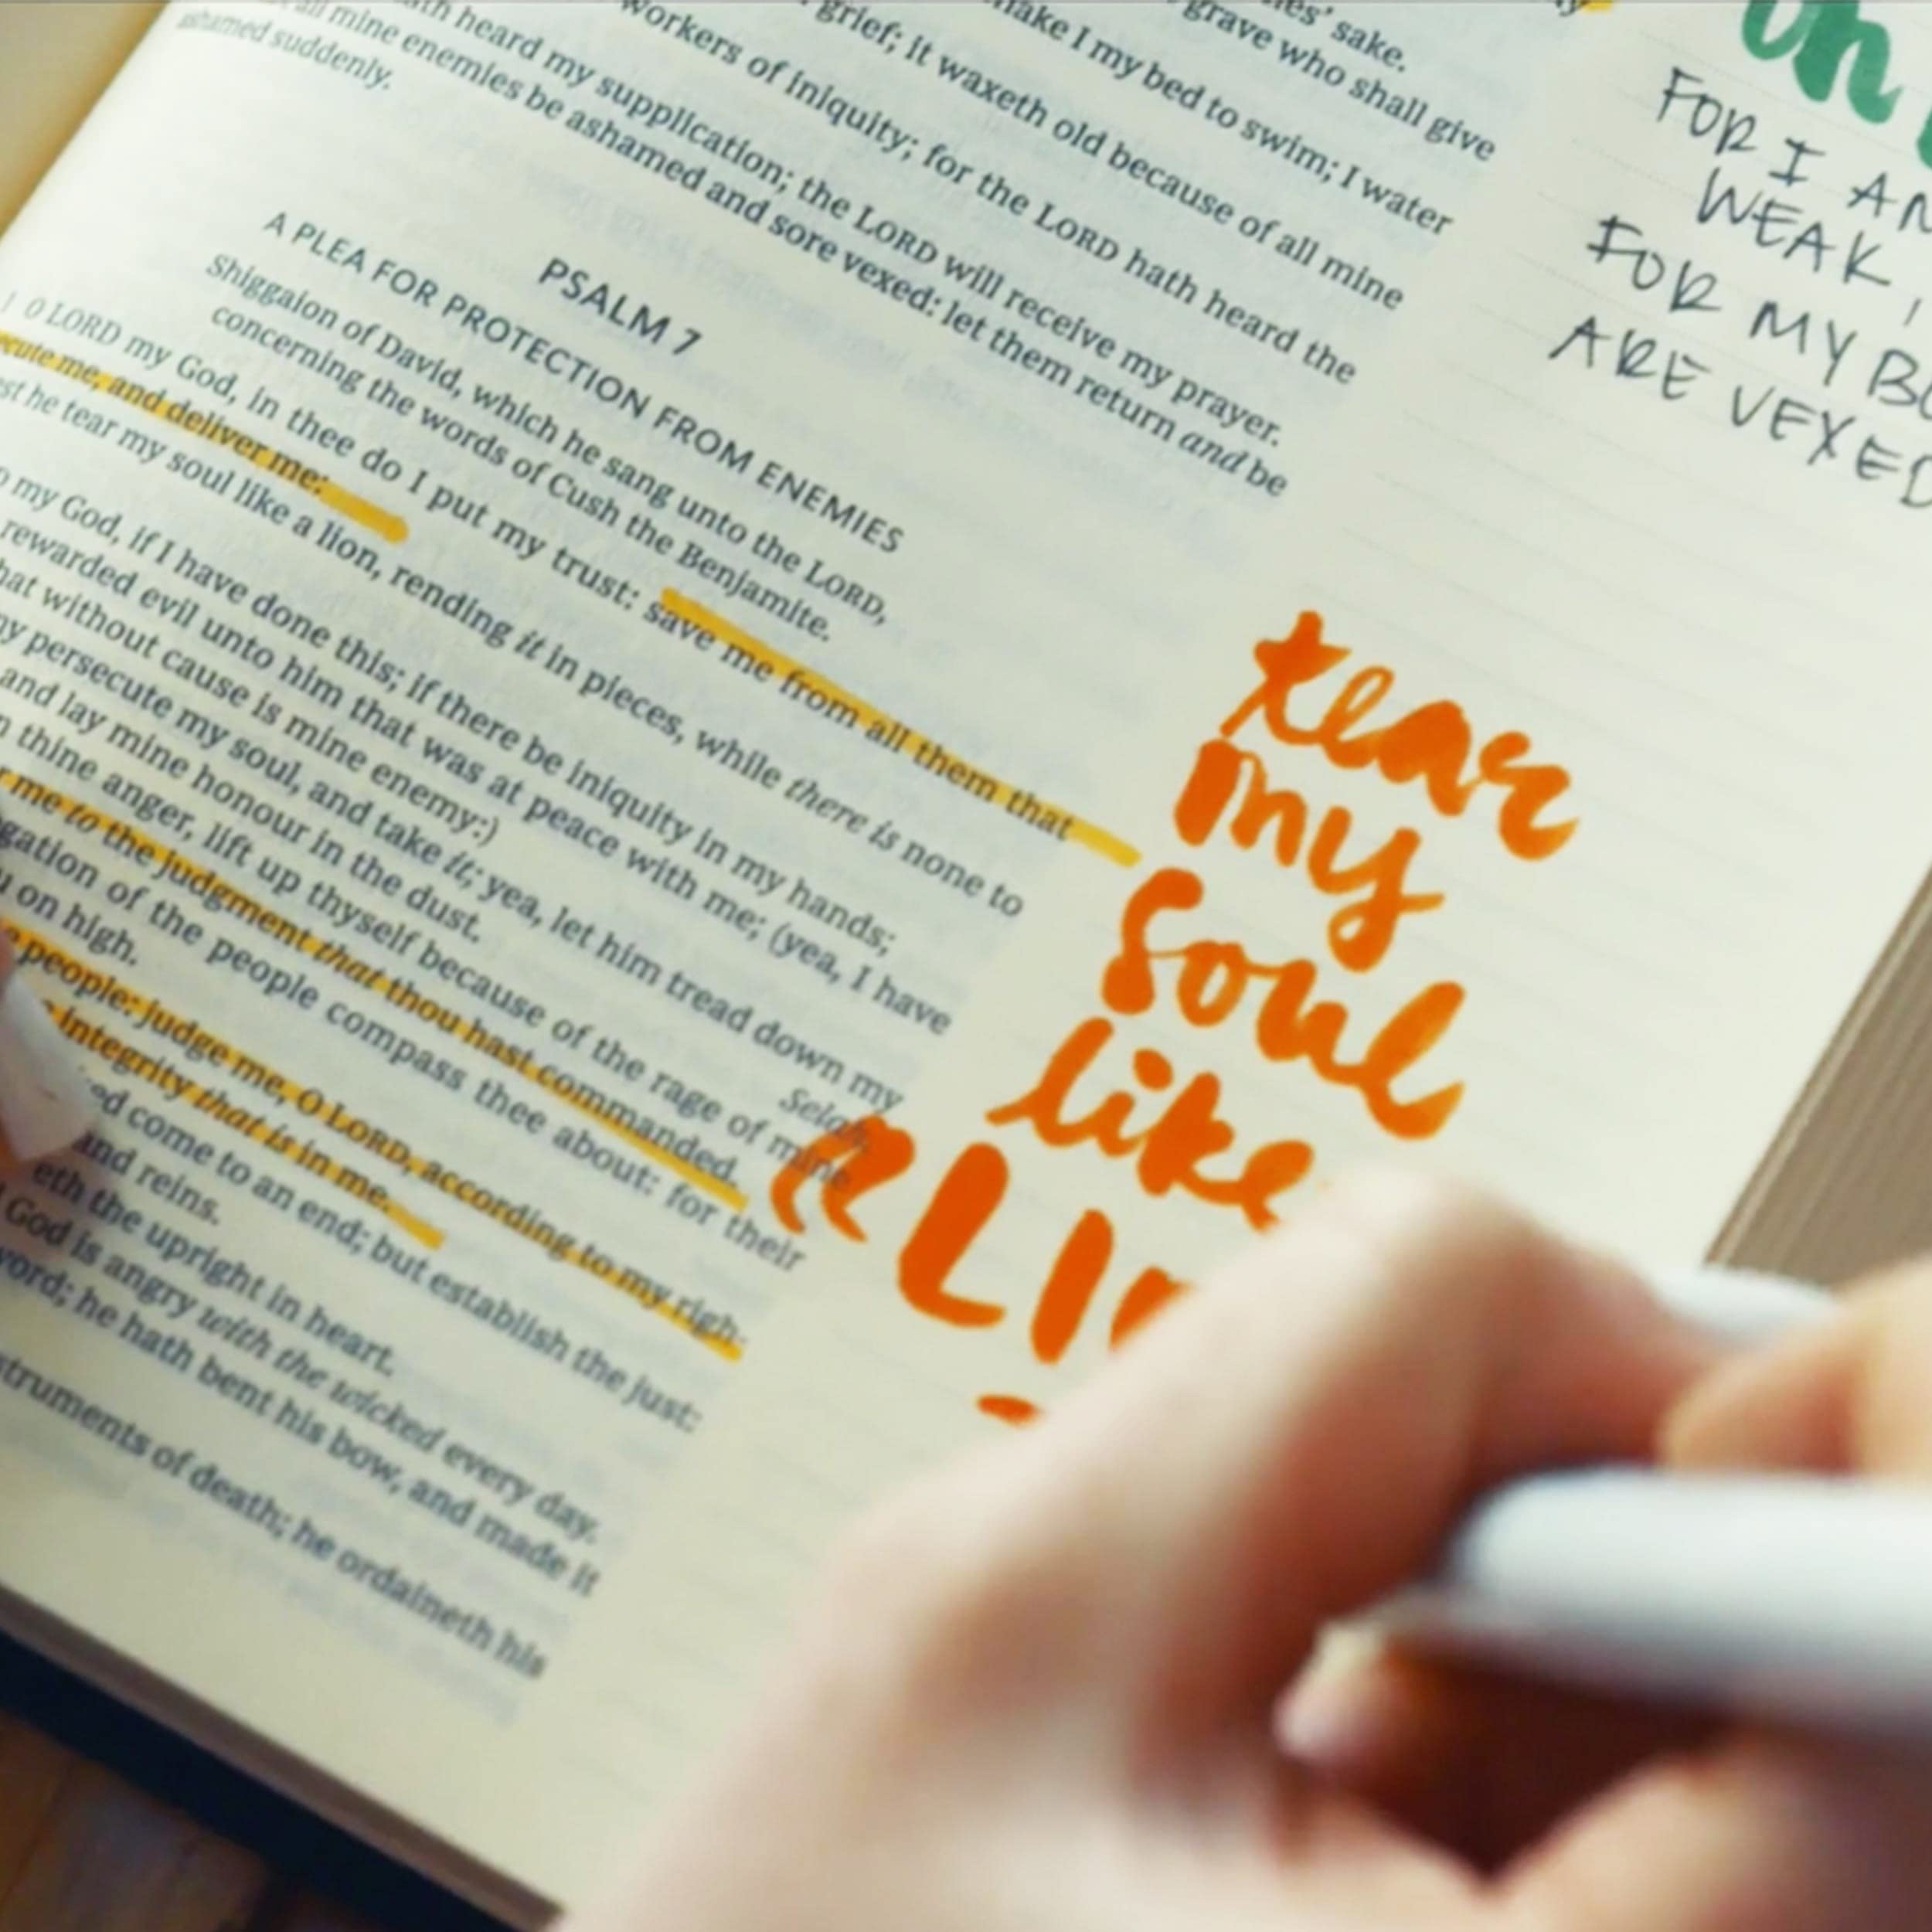 nes' sake.
grave who shall give
make I my bed to swim; I water
grief; it waxeth old because of all mine
workers of iniquity; for the LORD hath heard the
ath heard my supplication; the LORD will receive my prayer.
all mine enemies be ashamed and sore vexed: let them return and be
ashamed suddenly.
PSALM 7
A PLEA FOR PROTECTION FROM ENEMIES
Shiggaion of David, which he sang unto the LORD,
concerning the words of Cush the Benjamite.
1 O LORD my God, in thee do I put my trust: save me from all them that
ecute me, and deliver me:
st he tear my soul like a lion, rending it in pieces, while there is none to
my God, if I have done this; if there be iniquity in my hands;
rewarded evil unto him that was at peace with me; (yea, I have
hat without cause is mine enemy:)
my persecute my soul, and take it; yea, let him tread down my
and lay mine honour in the dust.
Selah.
n thine anger, lift up thyself because of the rage of mine
r me to the judgment that thou hast commanded.
gation of the people compass thee about: for their
u on high.
e people: judge me, O LORD, according to my righ
integrity that is in me.
ed come to an end; but establish the just:
and reins.
eth the upright in heart.
God is angry with the wicked every day.
word; he hath bent his bow, and made it
struments of death; he ordaineth his
oh
FOR I AM
WEAK,
FOR MY BO
ARE VEXED
tear
my
soul
like
LI